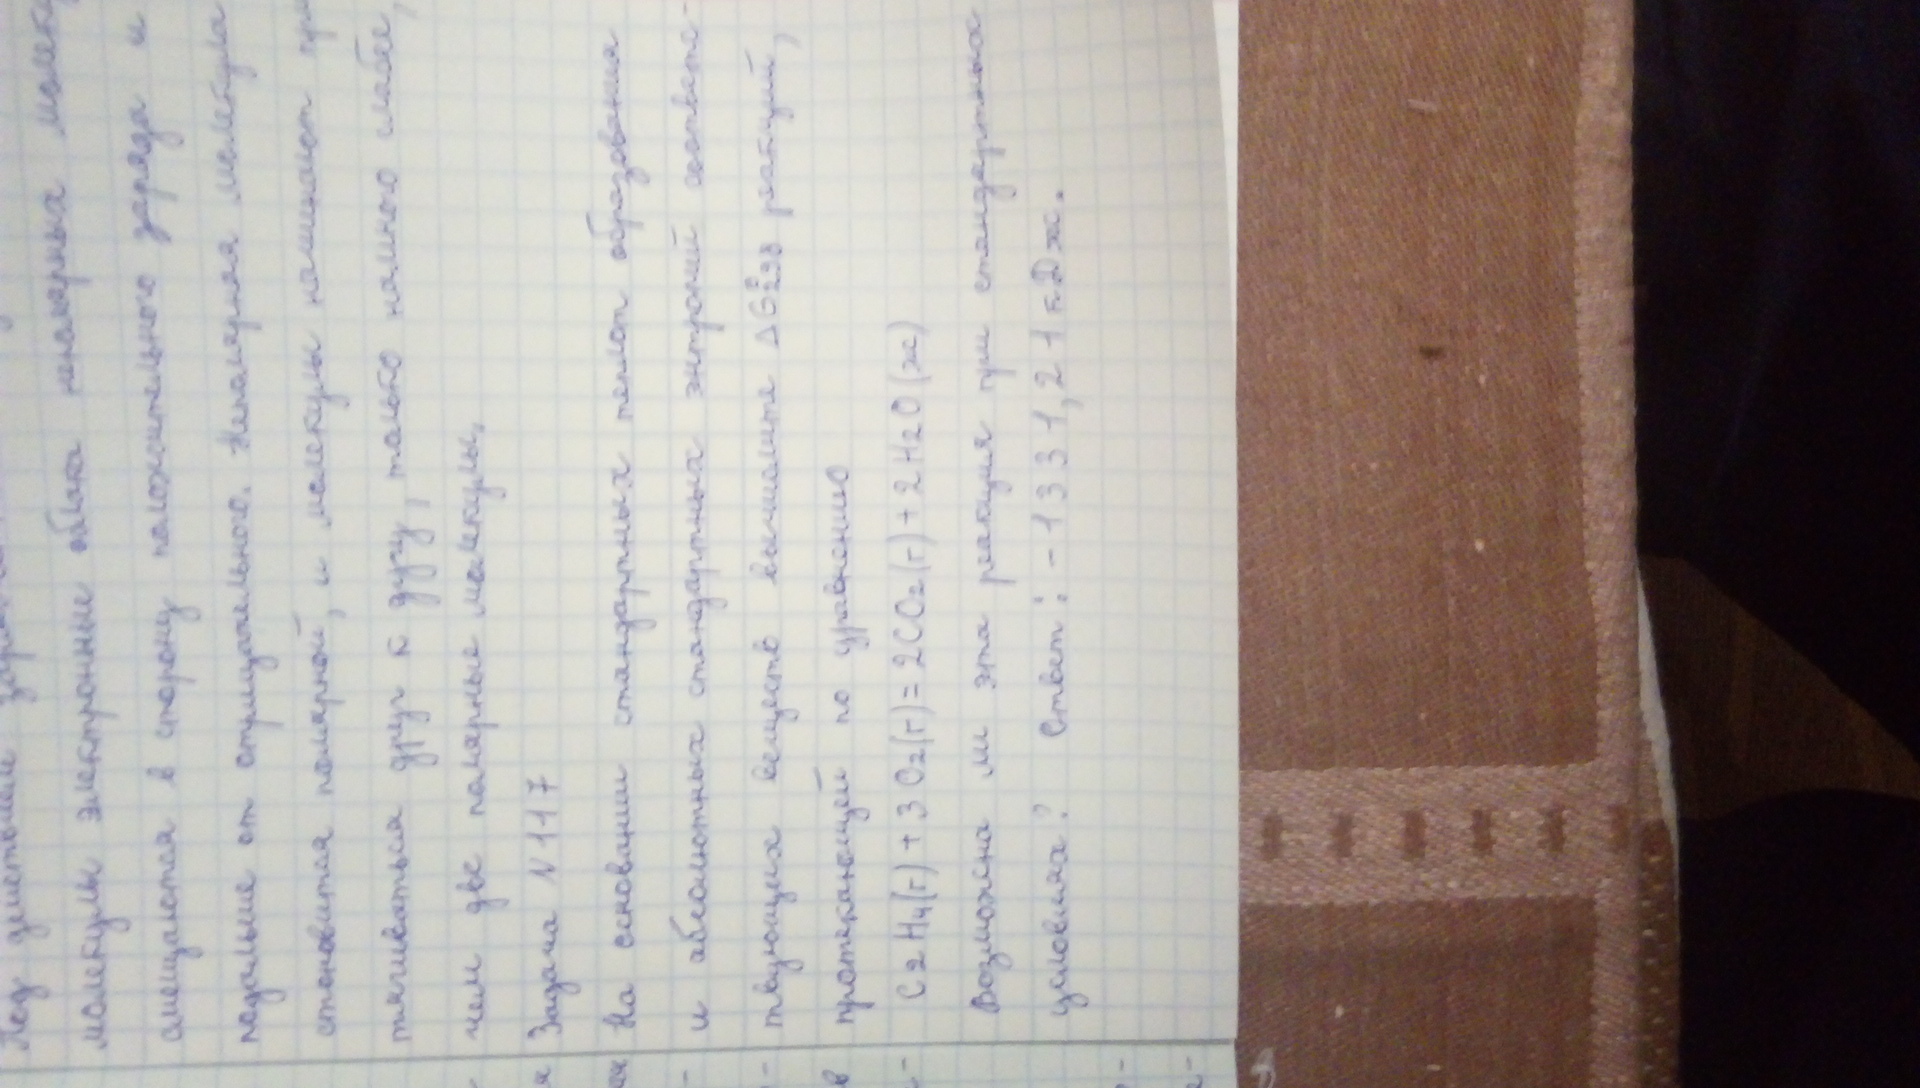 Под действием
молекулы электронные облака неполярных
смещаются в сторону положительного заряда и
подальше от отрицательного. Неполярная молекула
становится полярной, и молекулы начинают
тягиваться друг к другу, только намного слабее,
чем две полярные молекулы.
Задача N 117
На основании стандартных теплот образования
и абсолютных стандартных энтропий соответс-
твующих веществ вычислите ΔG°298 реакций,
протекающей по уравнению
C2H4(г) + 3O2(г) = 2CO2(г) + 2H2O(ж)
Возможна ли эта реакция при стандартных
условиях? Ответ: -1331,21 кДж.